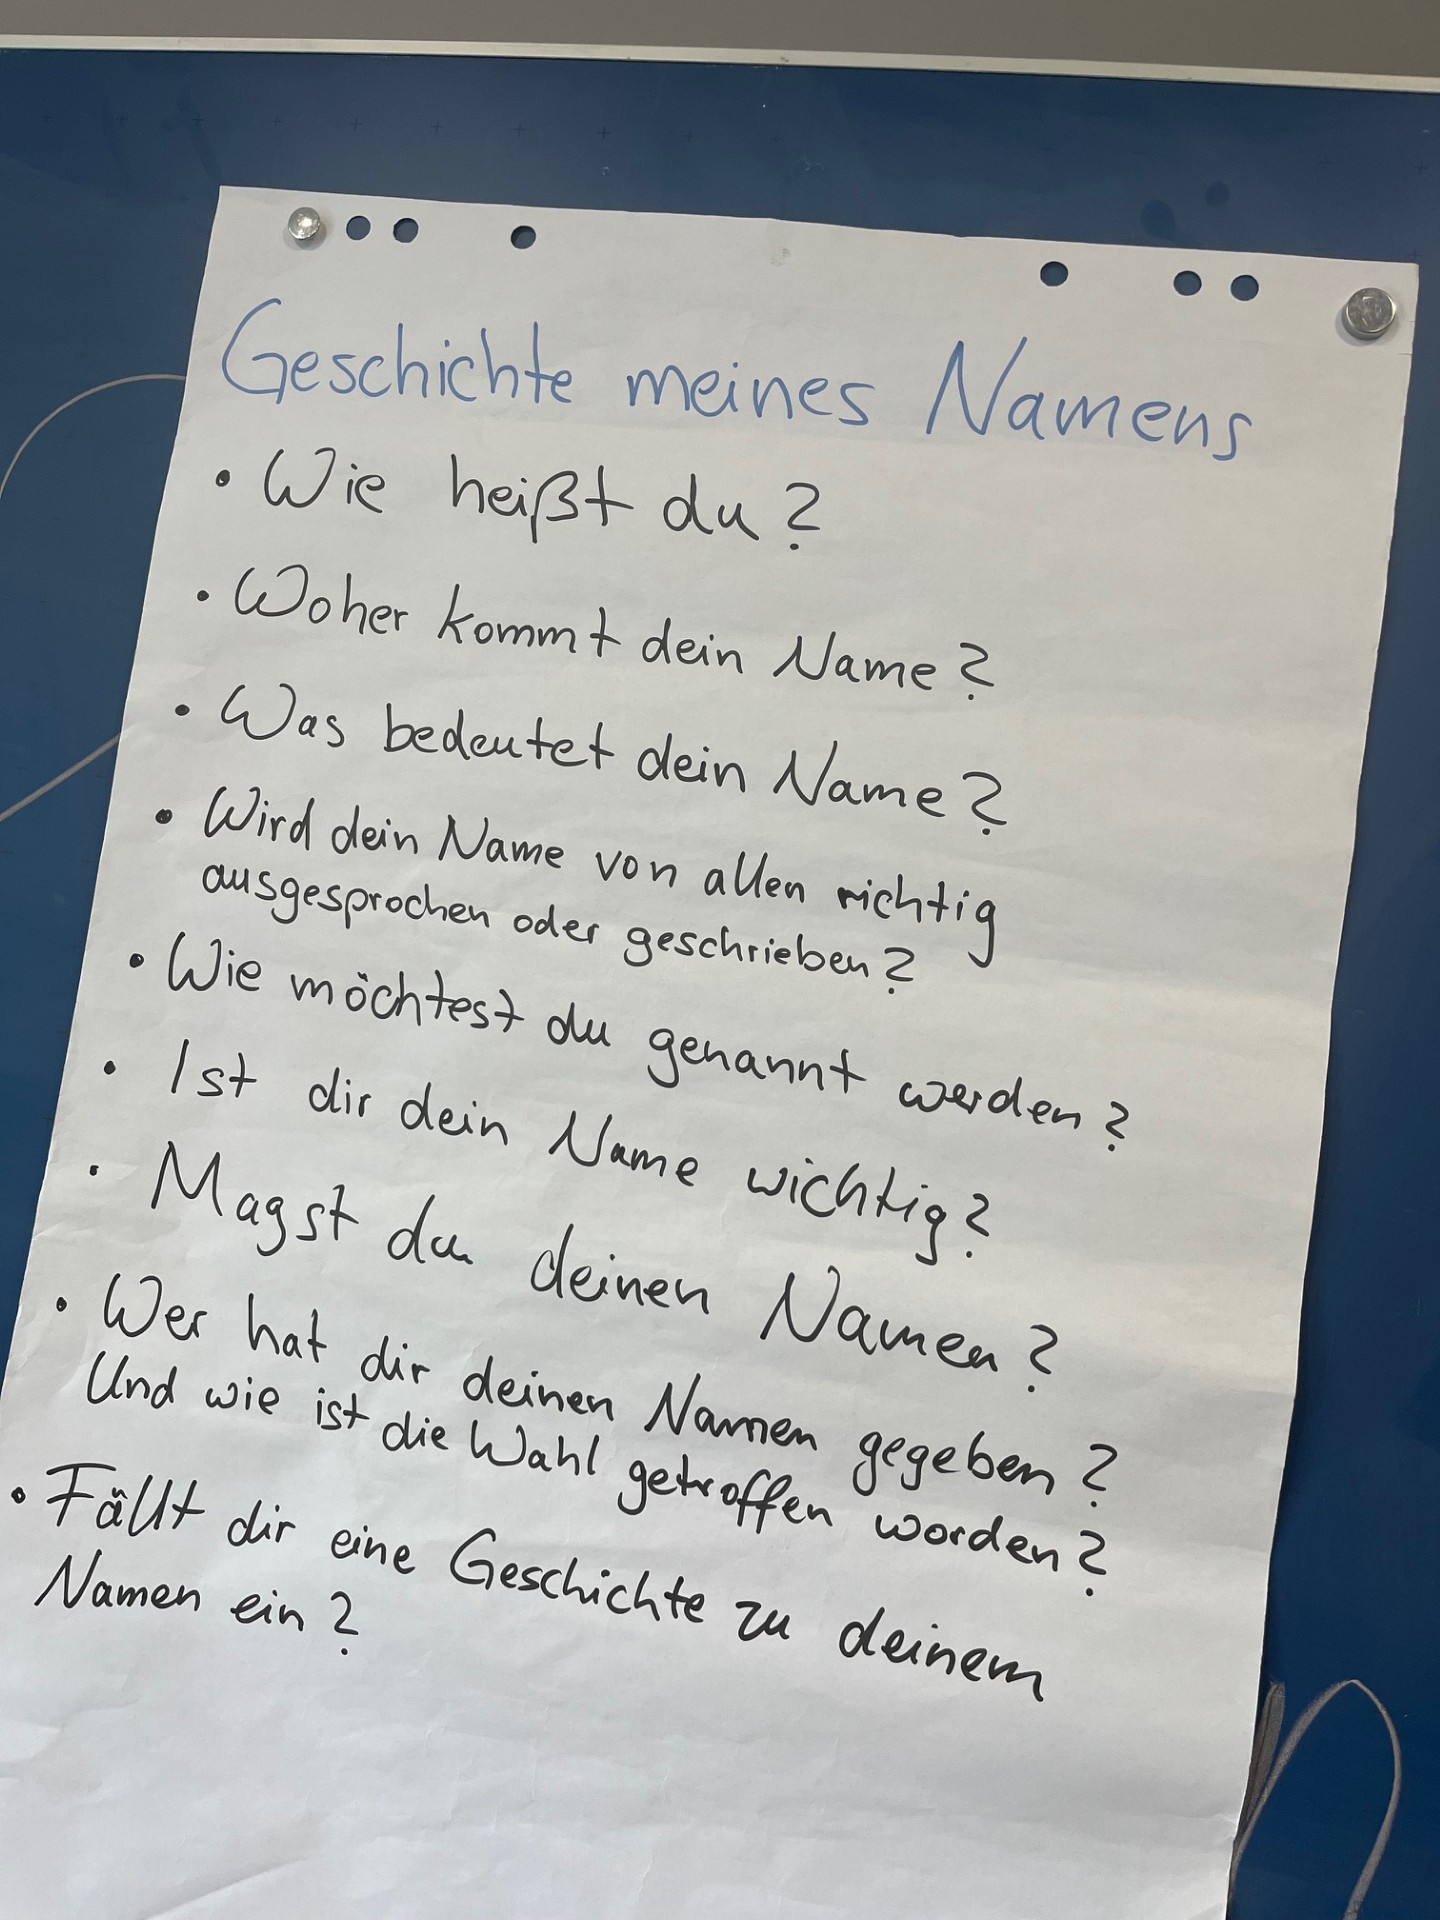 Geschichte meines Namens
• Wie heißt du?
• Woher kommt dein Name?
• Was bedeutet dein Name?
• Wird dein Name von allen richtig
ausgesprochen oder geschrieben?
• Wie möchtest du genannt werden?
• Ist dir dein Name wichtig?
• Magst du deinen Namen?
• Wer hat dir deinen Namen gegeben?
Und wie ist die Wahl getroffen worden?
• Fällt dir eine Geschichte zu deinem
Namen ein?